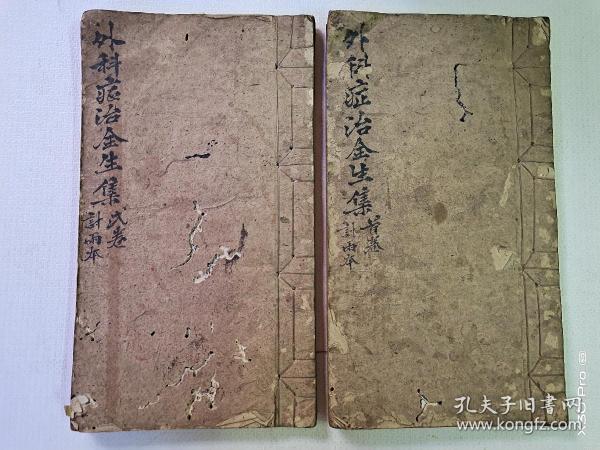 外科症治全生集
弍卷
計兩本
外科症治全生集
首卷
計兩本
孔夫子旧书网
www.kongfz.com